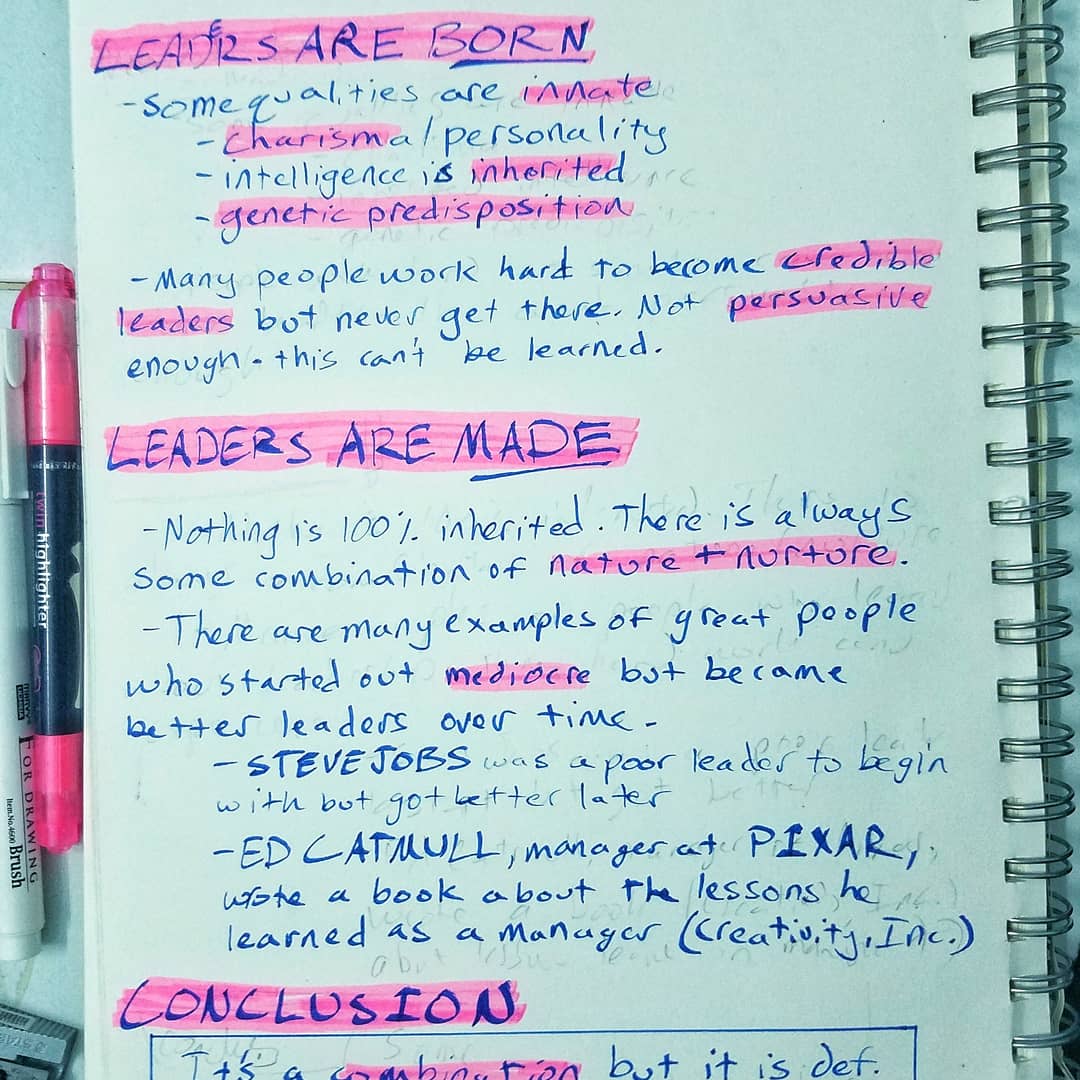 LEADERS ARE BORN
- Some qualities are innate
- charisma/personality
- intelligence is inherited
- genetic predisposition
- Many people work hard to become credible
leaders but never get there. Not persuasive
enough - this can't be learned.
LEADERS ARE MADE
- Nothing is 100% inherited. There is always
some combination of nature + nurture.
- There are many examples of great people
who started out mediocre but became
better leaders over time -
- STEVE JOBS was a poor leader to begin
with but got better later
- ED CATMULL, manager at PIXAR,
wrote a book about the lessons he
learned as a manager (Creativity, Inc.)
CONCLUSION
It's a combination but it is def.
twin highlighter
FOR DRAWING
Item.No.4600 Brush